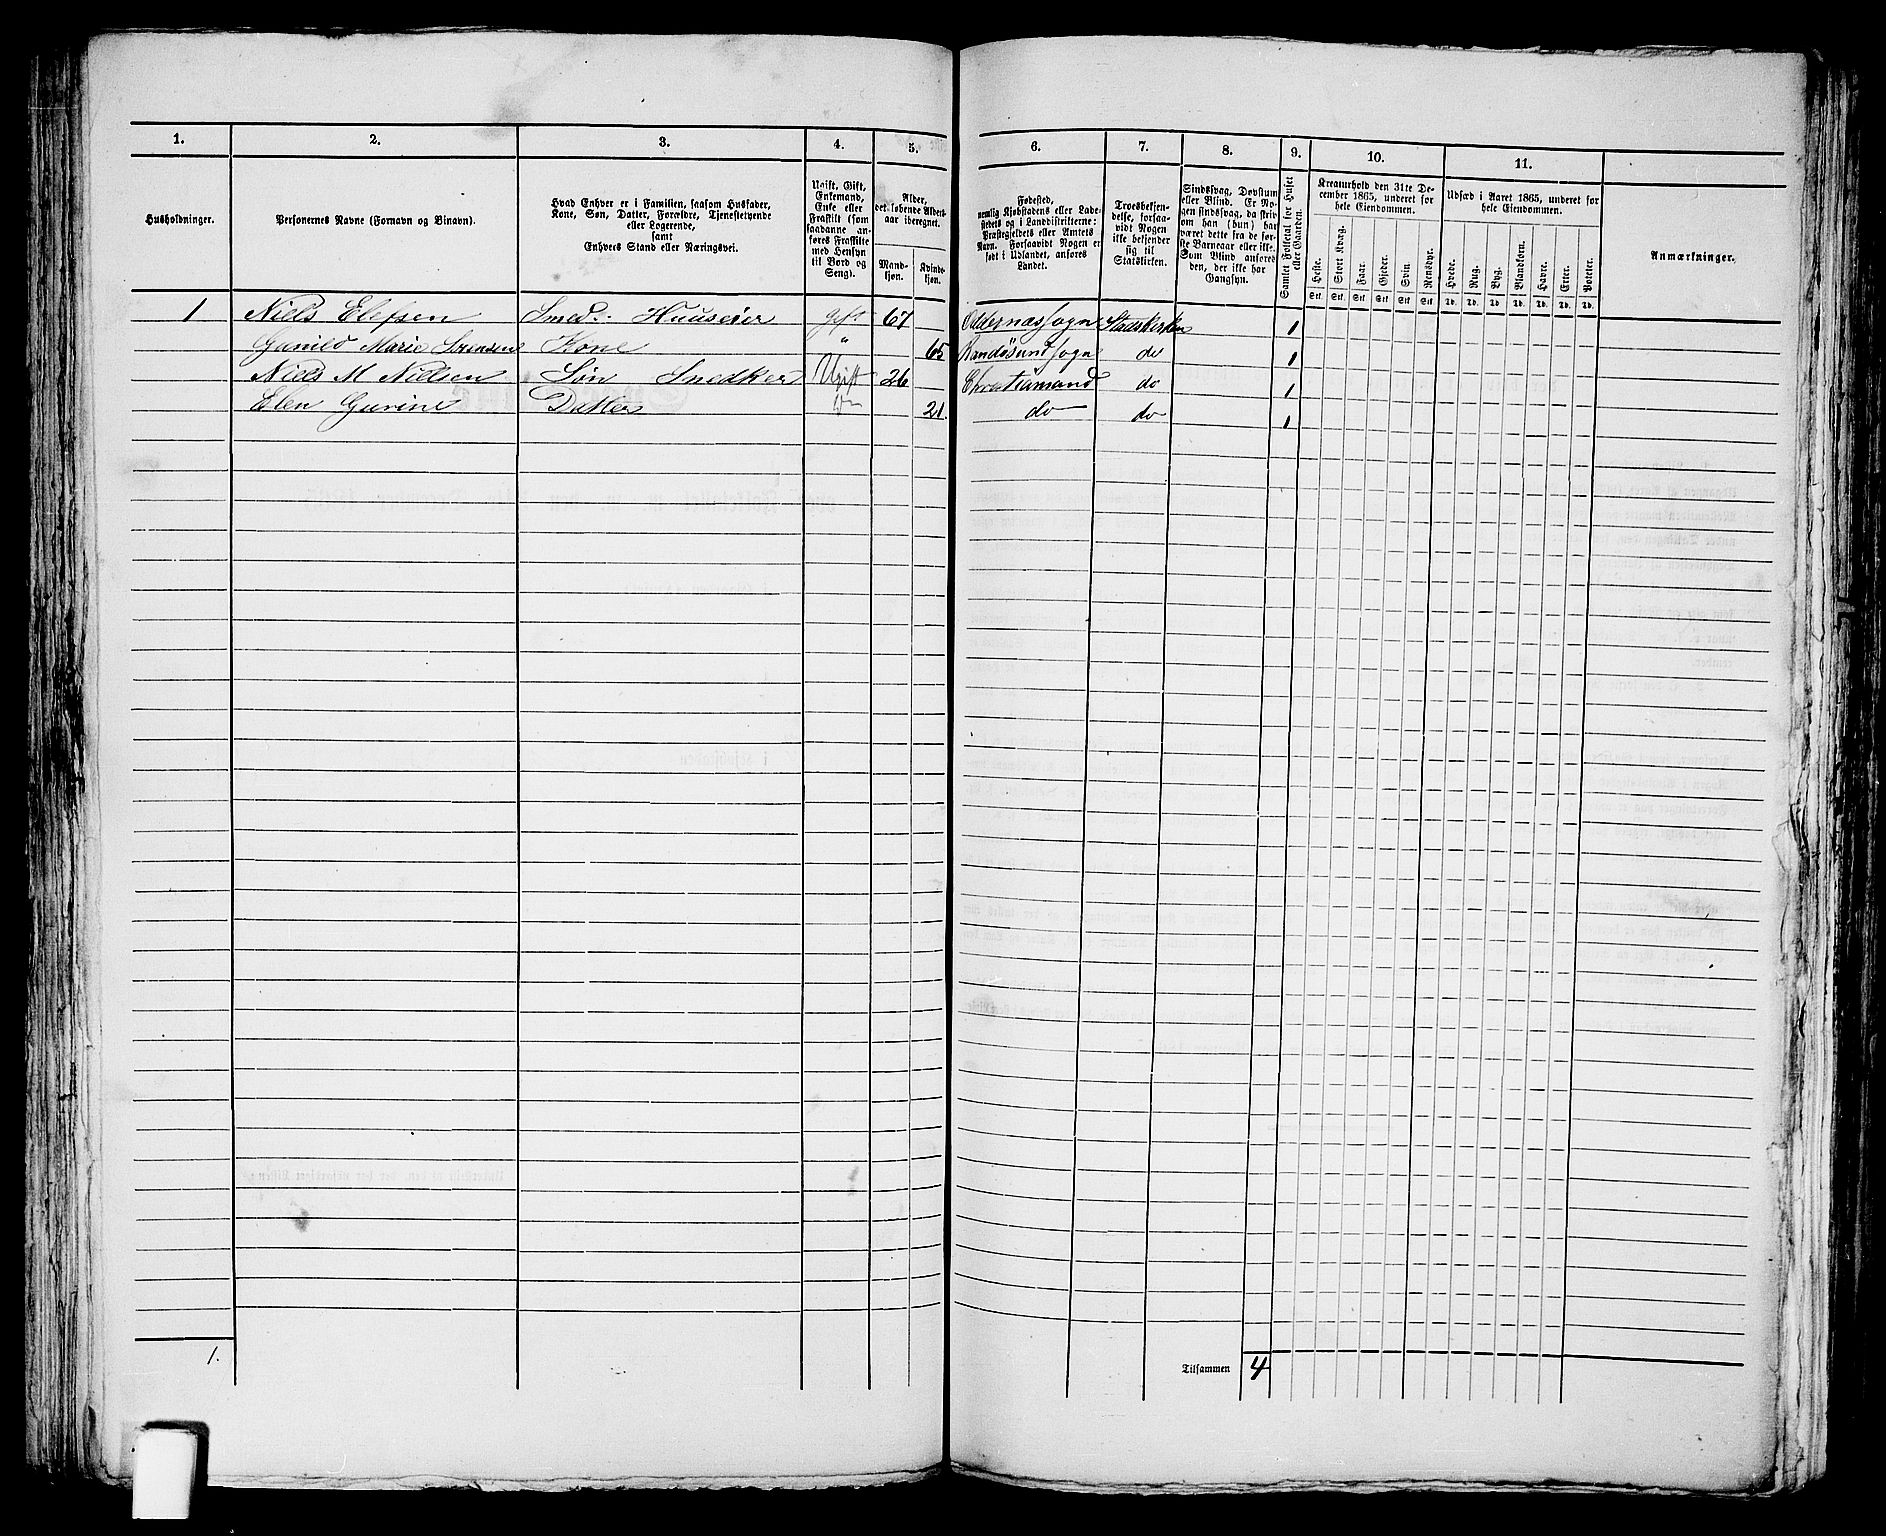 1. 2. 3. 4. 5. 6. 7. 8. 9. 10. 11.
Husholdninger.
Personernes Navne (Fornavn og Binavn).
Hvad Enhver er i Familien, saasom Husfader,
Kone, Søn, Datter, Forældre, Tjenestetyende
eller Logerende,
samt
Enhvers Stand eller Næringsvei.
Ugift, Gift,
Enkemand,
Enke eller
Fraskilt (som
saadanne an-
føres Fraskilte
med Hensyn
til Bord og
Seng).
Alder,
det løbende Alders-
aar iberegnet.
Mand-
kjøn.
Kvinde-
kjøn.
Fødested,
nemlig Kjøbstadens eller Lade-
stedets og i Landdistrikterne:
Præstegjeldets eller Amtets
Navn. Forsaavidt Nogen er
født i Udlandet, anføres
Landet.
Troesbekjen-
delse, forsaa-
vidt Nogen
ikke bekjender
sig til
Statskirken.
Sindssvag, Døvstum
eller Blind. Er No-
gen sindssvag, da skriv
om han (hun) har
været dette fra de før-
ste Barneaar eller ikke.
Som Blind anføres
den, der ikke har
Gangsyn.
Samlet Folketal for Huset
eller Gaarden.
Kreaturhold den 31te De-
cember 1865, underet for
hele Eiendommen.
Heste. Stort Kvæg. Faar. Gjeder. Svin. Rensdyr.
Stk. Stk. Stk. Stk. Stk. Stk.
Udsæd i Aaret 1865, underet for
hele Eiendommen.
Hvede. Rug. Byg. Blandkorn. Havre. Erter. Poteter.
Td. Td. Td. Td. Td. Td. Td.
Anmærkninger.
1 Niels Elefsen Smed. Huuseier gift 67 Oddernes sogn Stadskirken 1
Gunild Marie Sørensen Kone " 65 Randøsund sogn do 1
Niels M Nielsen Søn Snedker Ugift 26 Christiansand do 1
Elen Gurine Datter 21. do do 1
1.
Tilsammen 4